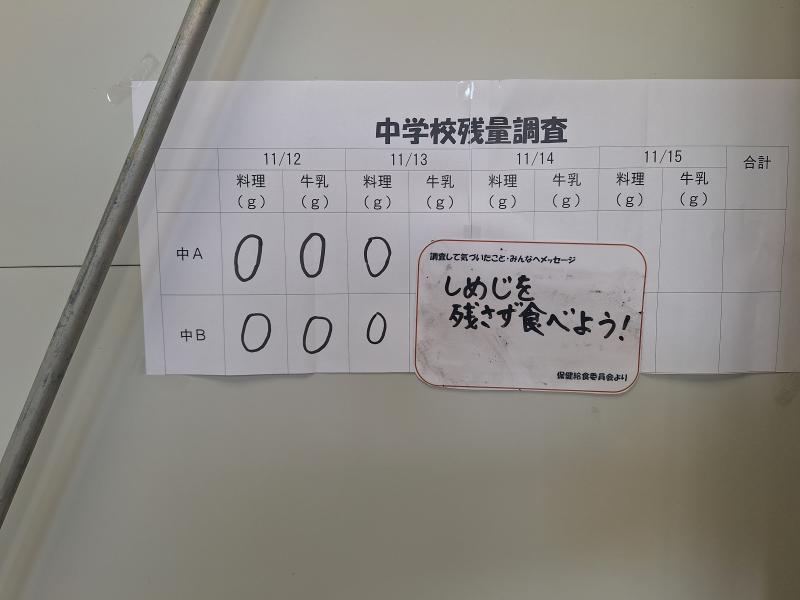 中学校残量調査
11/12 11/13 11/14 11/15 合計
料理 牛乳 料理 牛乳 料理 牛乳 料理 牛乳
(g) (g) (g) (g) (g) (g) (g) (g)
中A 0 0 0
中B 0 0 0
調査して気づいたこと・みんなへメッセージ
しめじを
残さず食べよう!
保健給食委員会より